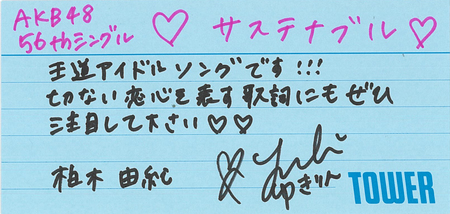 AKB48
56thシングル ♡ サステナブル ♡
王道アイドルソングです!!!
切ない恋心を表す歌詞にもぜひ
注目して下さい♡♡
柏木由紀
ゆきりん
TOWER